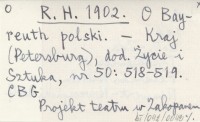 R. H. 1902. O Bay-
reuth polski. – Kraj
(Petersburg), dod. Życie i
Sztuka, nr 50: 518-519.
CBG
Projekt teatru w Zakopanem